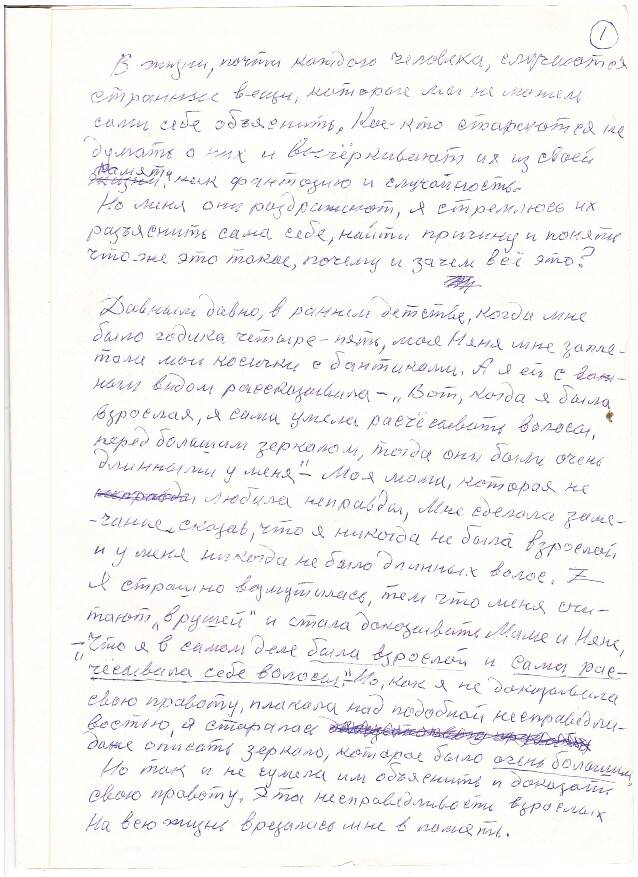 1
В жизни, почти каждого человека, случаются
странные вещи, которые мы не можем
сами себе объяснить. Кое-кто старается не
думать о них и вычёркивают их из своей
памяти, как фантазию и случайность.
Но меня они раздражают, я стремлюсь их
разъяснить сама себе, найти причину и понять
что же это такое, почему и зачем всё это?
Давным давно, в раннем детстве, когда мне
было годика четыре-пять, моя Няня мне запле-
тала мои косички с бантиками. А я ей с важ-
ным видом рассказывала – „Вот, когда я была
взрослая, я сама умела расчёсывать волосы,
перед большим зеркалом, тогда они были очень
длинными у меня" – Моя мама, которая не
любила неправды, мне сделала заме-
-чание, сказав, что я никогда не была взрослой
и у меня никогда не было длинных волос.
Я страшно возмутилась, тем что меня счи-
тают „врушей" и стала доказывать Маме и Няне,
– „Что я в самом деле была взрослой и сама рас-
чёсывала себе волосы." Но, как я не доказывала
свою правоту, плакала над подобной несправедли-
востью, я старалась
даже описать зеркало, которое было очень большим"
Но так и не сумела им объяснить и доказать
свою правоту. Эта несправедливость взрослых
на всю жизнь врезалась мне в память.